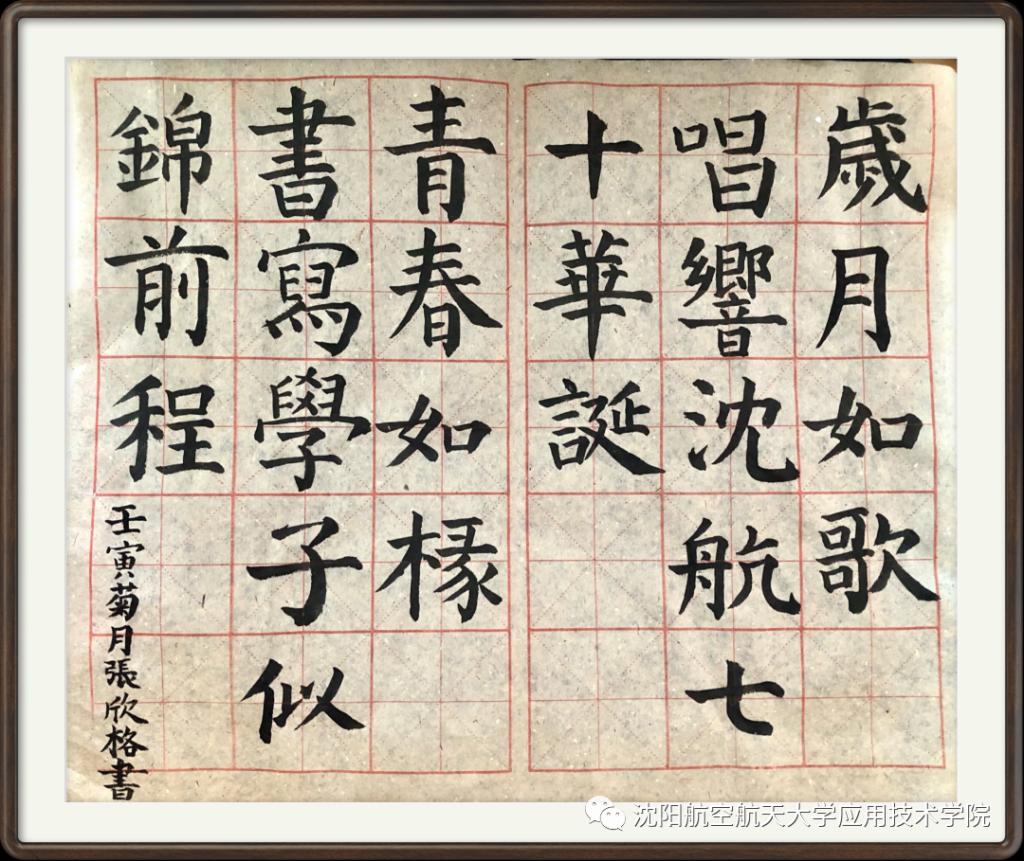 歲月如歌
唱響沈航七
十華誕
青春如椽
書寫學子似
錦前程
壬寅菊月張欣格書
沈阳航空航天大学应用技术学院